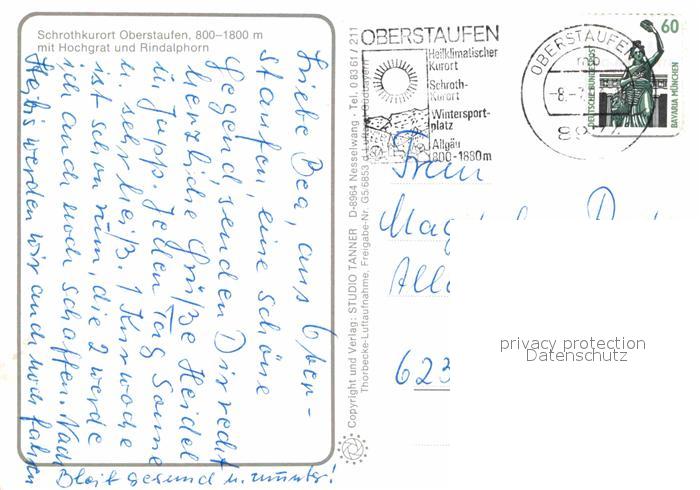 Schrothkurort Oberstaufen, 800–1800 m
mit Hochgrat und Rindalphorn
Liebe Bea, aus Ober-
staufen, eine schöne
Gegend, senden Dir recht
herzliche Grüße Heidel
u. Jupp. Jeden Tag Sonne
u. sehr heiß. 1 Kurwoche
ist schon rum, die 2 werde
ich auch noch schaffen. Nach
werden wir auch noch fahren
Bleibt gesund u. munter!
Copyright und Verlag: STUDIO TANNER D-8964 Nesselwang · Tel. 0 83 61 / 211
Thorbecke-Luftaufnahme, Freigabe-Nr. G5/6853
OBERSTAUFEN
Heilklimatischer
Kurort
Schroth-
kurort
Wintersport-
platz
Allgäu
800-1880m
OBERSTAUFEN
mb
-8.-
89
60
DEUTSCHE BUNDESPOST
BAVARIA MÜNCHEN
Frau
Mag
All
623
privacy protection
Datenschutz